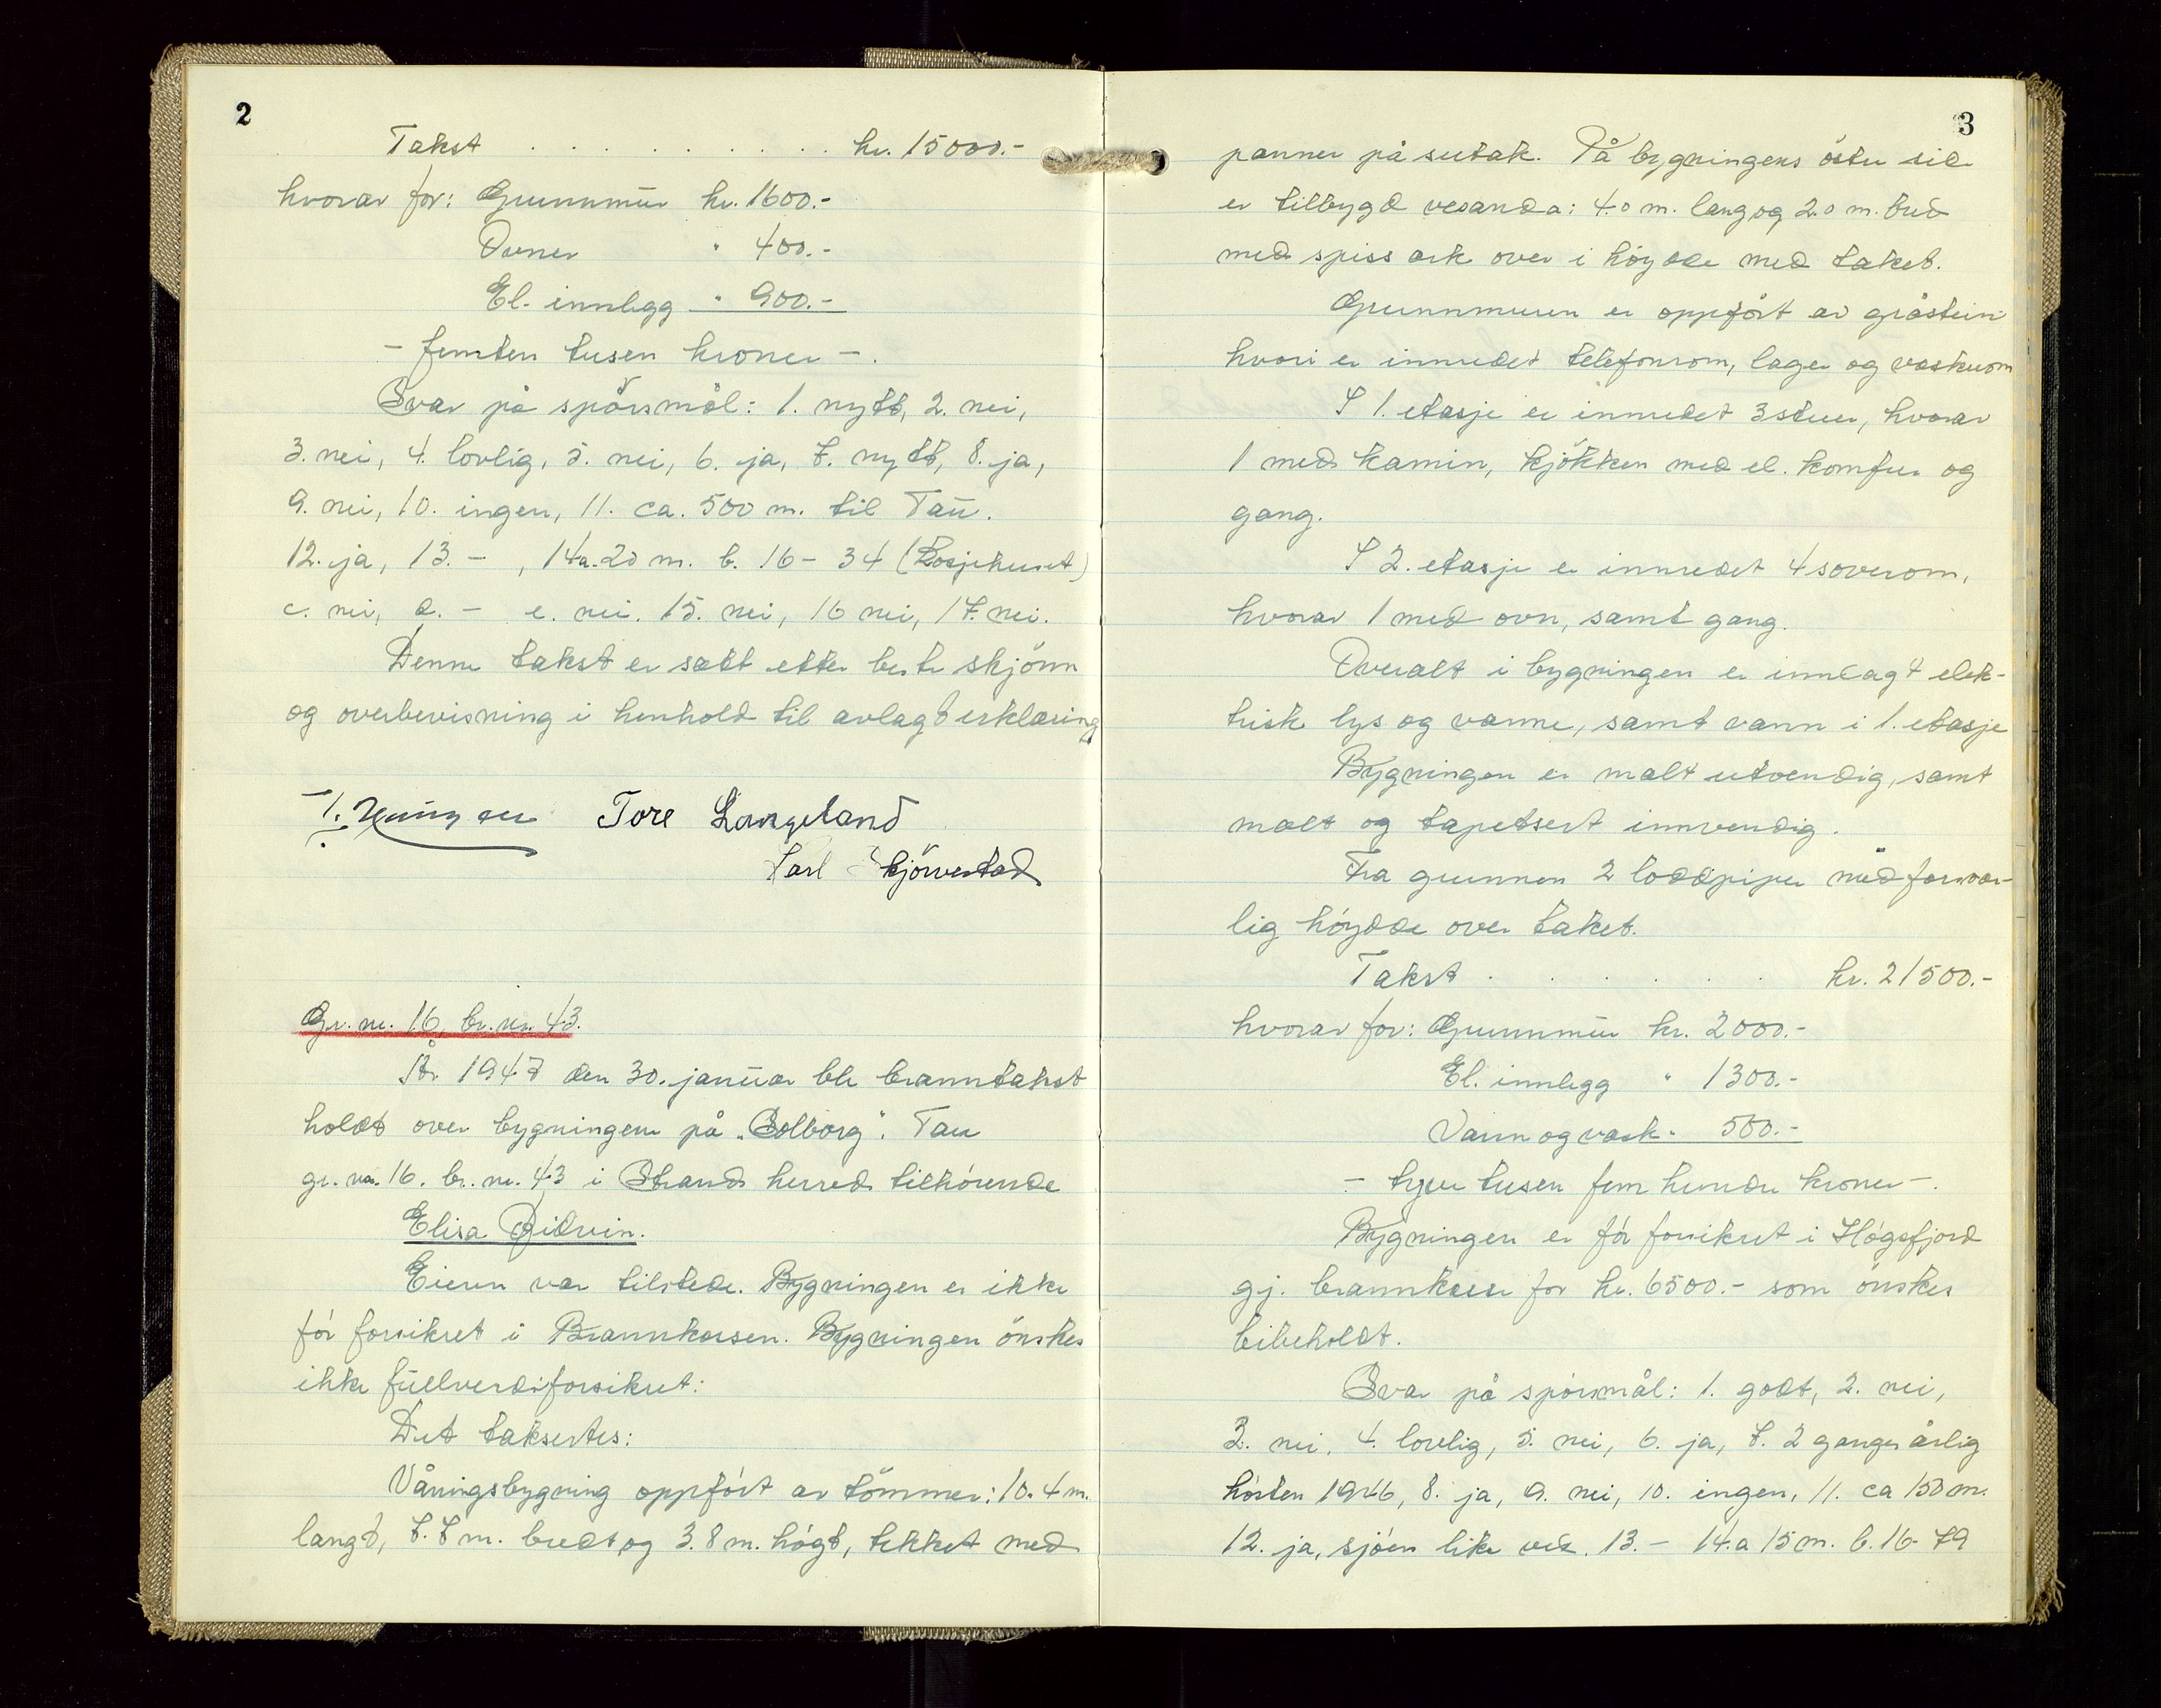 2
Takst . . . . . . . . . . kr. 15000.-
hvorav for: Grunnmur kr. 1600.-
Ovner " 400.-
El. innlegg " 900.-
- femten tusen kroner -.
Svar på spörsmål: 1. nytt, 2. nei,
3. nei, 4. lovlig, 5. nei, 6. ja, 7. nytt, 8. ja,
9. nei, 10. ingen, 11. ca. 500 m. til Tau.
12. ja, 13. - , 14a. 20 m. b. 16 - 34 (Losjehuset)
c. nei, d. - e. nei. 15. nei, 16 nei, 17. nei.
Denne takst er satt etter beste skjönn
og overbevisning i henhold til avlagt erklæring
Tore Langeland
Karl Skjörvestad
Gr. nr. 16, br. nr. 43.
År 1947 den 30. januar ble branntakst
holdt over bygningene på "Solborg". Tau
gr. nr. 16. br. nr. 43 i Strand herred tilhörende
Elisa Gidvin.
Eieren var tilstede. Bygningen er ikke
för forsikret i Brannkassen. Bygningen önskes
ikke fullverdiforsikret:
Det taksertes:
Våningsbygning oppfört av tömmer: 10.4 m.
langt, 7.7 m. bredt og 3.8 m. högt, tekket med
3
panner på sutak. På bygningens östre side
er tilbygd veranda: 4.0 m. lang og 2.0 m. bred
med spiss ark over i höyde med taket.
Grunnmuren er oppfört av gråstein
hvori er innredet telefonrom, lager og vaskerom
I 1. etasje er innredet 3 stuer, hvorav
1 med kamin, kjökken med el. komfur og
gang.
I 2. etasje er innredet 4 soverom,
hvorav 1 med ovn, samt gang.
Overalt i bygningen er innlagt elek-
trisk lys og varme, samt vann i 1. etasje
Bygningen er malt utvendig, samt
malt og tapetsert innvendig.
Fra grunnen 2 loddpiper med forsvar-
lig höyde over taket.
Takst . . . . . . kr. 21500.-
hvorav for: Grunnmur kr. 2000.-
El. innlegg " 1300.-
Vann og vask " 500.-
- tjueen tusen fem hundre kroner -.
Bygningen er för forsikret i Högsfjord
gj. brannkasse for kr. 6500.- som önskes
bibeholdt.
Svar på spörsmål: 1. godt, 2. nei,
3. nei, 4. lovlig, 5. nei, 6. ja, 7. 2 ganger årlig
hösten 1946, 8. ja, 9. nei, 10. ingen, 11. ca 150 m.
12. ja, sjöen like ved. 13. - 14.a 15 m. b. 16-79